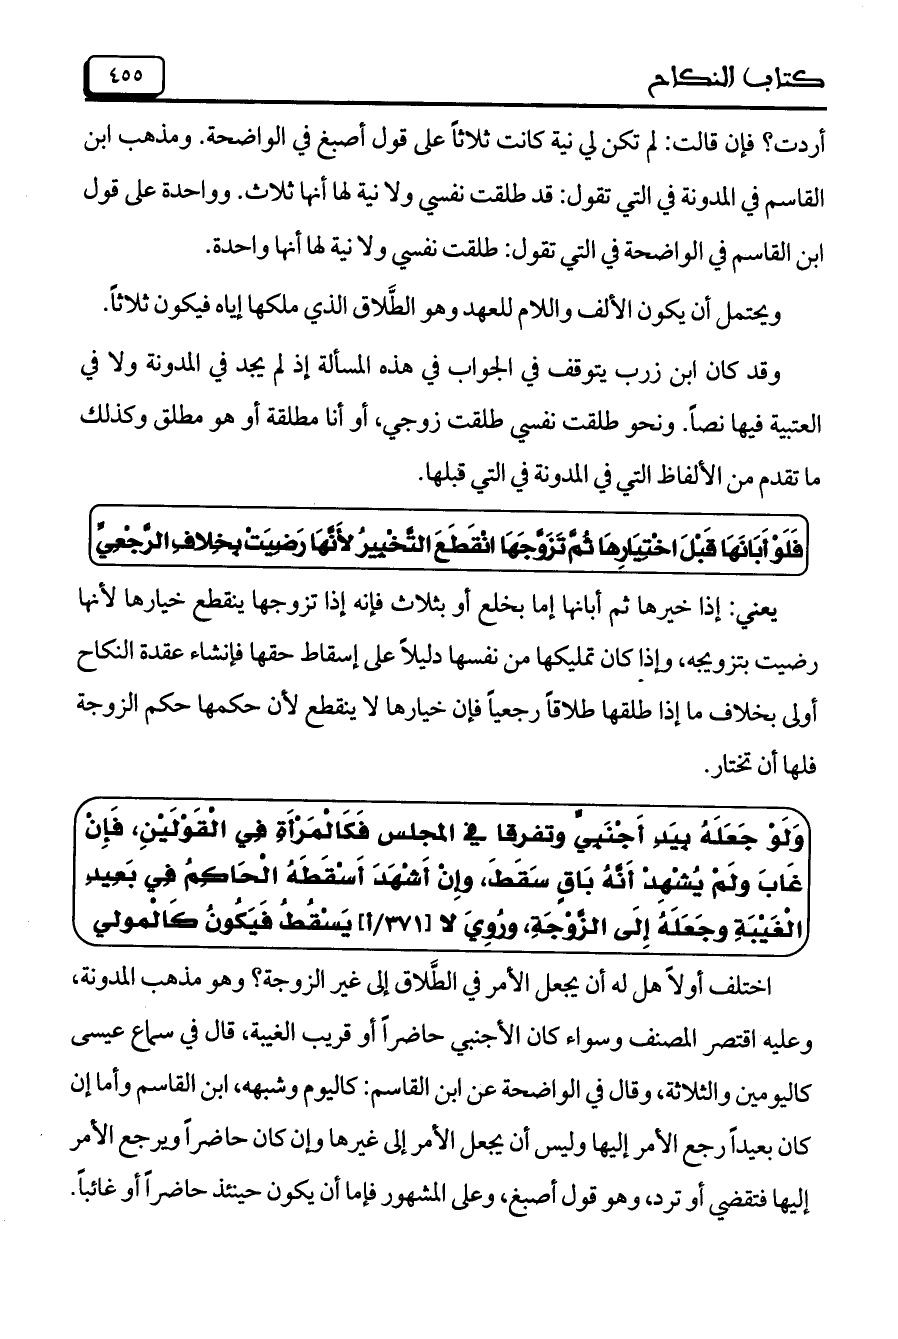 كتاب النكاح
٤٥٥
أردت؟ فإن قالت: لم تكن لي نية كانت ثلاثاً على قول أصبغ في الواضحة. ومذهب ابن
القاسم في المدونة في التي تقول: قد طلقت نفسي ولا نية لها أنها ثلاث. وواحدة على قول
ابن القاسم في الواضحة في التي تقول: طلقت نفسي ولا نية لها أنها واحدة.
ويحتمل أن يكون الألف واللام للعهد وهو الطَّلاق الذي ملكها إياه فيكون ثلاثاً.
وقد كان ابن زرب يتوقف في الجواب في هذه المسألة إذ لم يجد في المدونة ولا في
العتبية فيها نصاً. ونحو طلقت نفسي طلقت زوجي، أو أنا مطلقة أو هو مطلق وكذلك
ما تقدم من الألفاظ التي في المدونة في التي قبلها.
فَلَوْ أَبَانَهَا قَبْلَ اخْتِيَارِهَا ثُمَّ تَزَوَّجَهَا انْقَطَعَ التَّخْيِيرُ لأَنَّهَا رَضِيَتْ بِخِلافِ الرَّجْعِيِّ
يعني: إذا خيرها ثم أبانها إما بخلع أو بثلاث فإنه إذا تزوجها ينقطع خيارها لأنها
رضيت بتزويجه، وإذا كان تمليكها من نفسها دليلاً على إسقاط حقها فإنشاء عقدة النكاح
أولى بخلاف ما إذا طلقها طلاقاً رجعياً فإن خيارها لا ينقطع لأن حكمها حكم الزوجة
فلها أن تختار.
وَلَوْ جَعَلَهُ بِيَدِ أَجْنَبِيٍّ وتفرقا في المجلس فَكَالْمَرْأَةِ فِي الْقَوْلَيْنِ، فَإِنْ
غَابَ وَلَمْ يُشْهِدْ أَنَّهُ بَاقٍ سَقَطَ، وَإِنْ أَشْهَدَ أَسْقَطَهُ الْحَاكِمُ فِي بَعِيدِ
الْغَيْبَةِ وَجَعَلَهُ إِلَى الزَّوْجَةِ، ورُوِيَ لا [٣٧١/أ] يَسْقُطُ فَيَكُونُ كَالْمولي
اختلف أولاً هل له أن يجعل الأمر في الطَّلاق إلى غير الزوجة؟ وهو مذهب المدونة،
وعليه اقتصر المصنف وسواء كان الأجنبي حاضراً أو قريب الغيبة، قال في سماع عيسى
كاليومين والثلاثة، وقال في الواضحة عن ابن القاسم: كاليوم وشبهه، ابن القاسم وأما إن
كان بعيداً رجع الأمر إليها وليس أن يجعل الأمر إلى غيرها وإن كان حاضراً ويرجع الأمر
إليها فتقضي أو ترد، وهو قول أصبغ، وعلى المشهور فإما أن يكون حينئذ حاضراً أو غائباً.